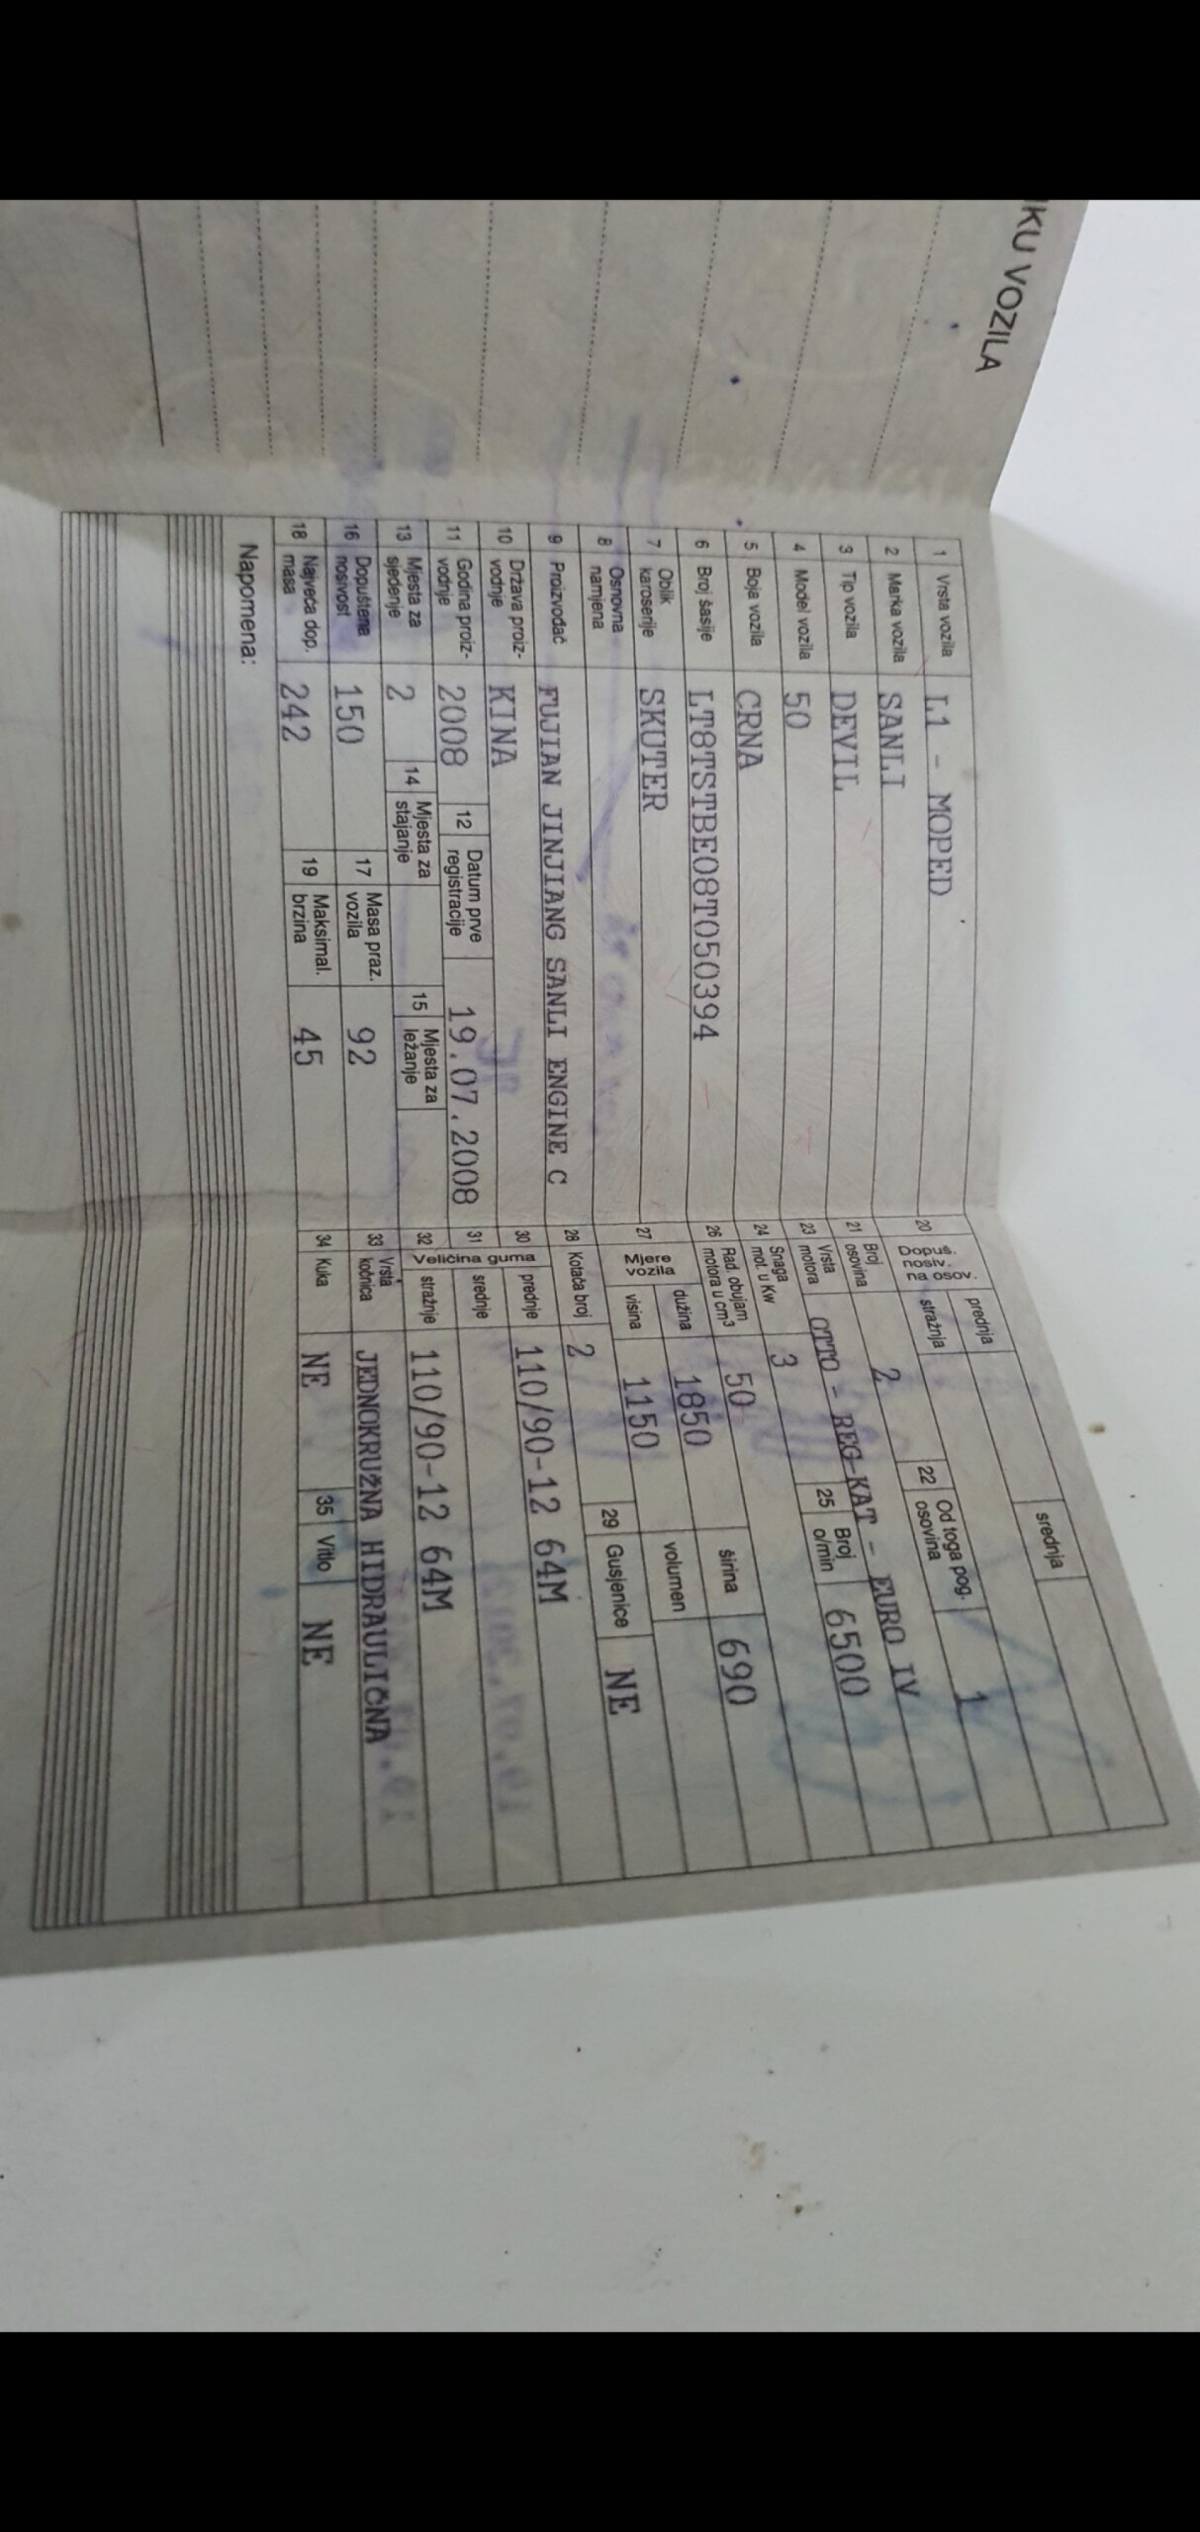 IKU VOZILA
1 Vrsta vozila L1 - MOPED
2 Marka vozila SANLI
3 Tip vozila DEVIL
4 Model vozila 50
5 Boja vozila CRNA
6 Broj šasije LT8TSTBE08T050394
7 Oblik karoserije SKUTER
8 Osnovna namjena
9 Proizvođač FUJIAN JINJIANG SANLI ENGINE C
10 Država proiz- vodnje KINA
11 Godina proiz- vodnje 2008 12 Datum prve registracije 19.07.2008
13 Mjesta za sjedenje 2 14 Mjesta za stajanje 15 Mjesta za ležanje
16 Dopuštena nosivost 150 17 Masa praz. vozila 92
18 Najveća dop. masa 242 19 Maksimal. brzina 45
Napomena:
20 Dopuš. nosiv. na osov. prednja srednja
stražnja
21 Broj osovina 2 22 Od toga pog. osovina 1
23 Vrsta motora OTTO - REG-KAT - EURO IV
24 Snaga mot. u Kw 3 25 Broj o/min 6500
26 Rad. obujam motora u cm³ 50
27 Mjere vozila dužina 1850 širina 690
visina 1150 volumen
28 Kotača broj 2 29 Gusjenice NE
30 Veličina guma prednje 110/90-12 64M
31 srednje
32 stražnje 110/90-12 64M
33 Vrsta kočnica JEDNOKRUŽNA HIDRAULIČNA
34 Kuka NE 35 Vitlo NE